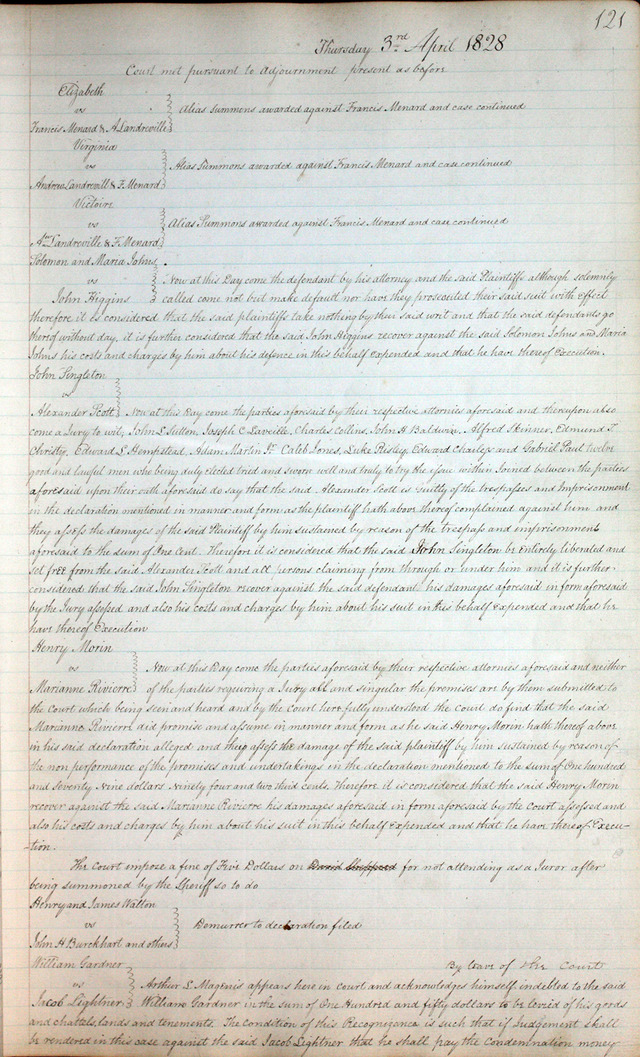 121
Thursday 3rd April 1828
Court met pursuant to adjournment present as before
Elizabeth
vs
Francis Menard & A Landreville
Alias Summons awarded against Francis Menard and case continued
Virginia
vs
Andrew Landrevill & F. Menard
Alias Summons awarded against Francis Menard and case continued
Victoire
vs
Aw Landreville & F. Menard
Alias Summons awarded against Francis Menard and case continued
Solomon and Maria Johns
vs
John Higgins
Now at this Day come the defendant by his attorney and the said Plaintiffs although solemnly
called come not but make default nor have they prosecuted their said suit with effect
therefore it is considered that the said plaintiffs take nothing by their said writ and that the said defendants go
thereof without day, it is further considered that the said John Higgins recover against the said Solomon Johns and Maria
Johns his costs and charges by him about his defence in this behalf expended and that he have thereof Execution.
John Singleton
vs
Alexander Scott
Now at this Day come the parties aforesaid by their respective attornies aforesaid and thereupon also
come a Jury to wit, John L Sutton, Joseph C Laveille, Charles Collins, John H Baldwin, Alfred Skinner, Edmund T
Christy, Edward L Hempstead, Adam Martin Sr Caleb Jones, Luke Presley, Edward Charless and Gabriel Paul twelve
good and lawful men who being duly elected tried and sworn well and truly to try the issue within Joined between the parties
aforesaid upon their oath aforesaid do say that the said Alexander Scott is guilty of the trespasses and Imprisonment
in the declaration mentioned in manner and form as the plaintiff hath above thereof complained against him and
they assess the damages of the said Plaintiff by him sustained by reason of the trespass and imprisonment
aforesaid to the sum of One Cent. Therefore it is considered that the said John Singleton be entirely liberated and
set free from the said Alexander Scott and all persons claiming from through or under him and it is further
considered that the said John Singleton recover against the said defendant his damages aforesaid in form aforesaid
by the Jury assessed and also his costs and charges by him about his suit in this behalf expended and that he
have thereof Execution
Henry Morin
vs
Marianne Rivierre
Now at this Day come the parties aforesaid by their respective attornies aforesaid and neither
of the parties requiring a Jury all and singular the premises are by them submitted to
the Court which being seen and heard and by the Court here fully understood the Court do find that the said
Marianne Rivierre did promise and assume in manner and form as he said Henry Morin hath thereof above
in his said declaration alleged and they assess the damage of the said plaintiff by him sustained by reason of
the non performance of the promises and undertakings in the declaration mentioned to the sum of One hundred
and Seventy Nine dollars ninety four and two third cents. Therefore it is considered that the said Henry Morin
recover against the said Marianne Rivierre his damages aforesaid in form aforesaid by the Court assessed and
also his costs and charges by him about his suit in this behalf expended and that he have thereof Execu-
-tion.
The Court impose a fine of Five Dollars on David Sheppard for not attending as a Juror after
being summoned by the Sheriff so to do
Henry and James Walton
vs
John H Burckhart and others
Demurrer to declaration filed
William Gardner
By leave of the Court
vs
Jacob Lightner
Arthur L Magenis appears here in court and acknowledges himself indebted to the said
William Gardner in the sum of One Hundred and fifty dollars to be levied of his goods
and chattels, lands and tenements. The condition of this Recognizance is such that if Judgement shall
be rendered in this case against the said Jacob Lightner that he shall pay the Condemnation money